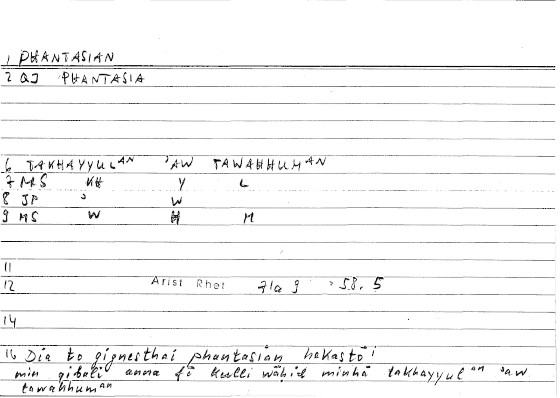 1 PHANTASIAN
2 QJ PHANTASIA
6 TAKHAYYULAN ʾAW TAWAHHUMAN
7 MS KH Y L
8 JP ʾ W
9 MS W H M
11
12 Arist Rhet 71a 9 58.5
14
16 Dia to gignesthai phantasian hekastōi
min qibali anna fī kulli wāḥid minhā takhayyulan ʾaw
tawahhuman